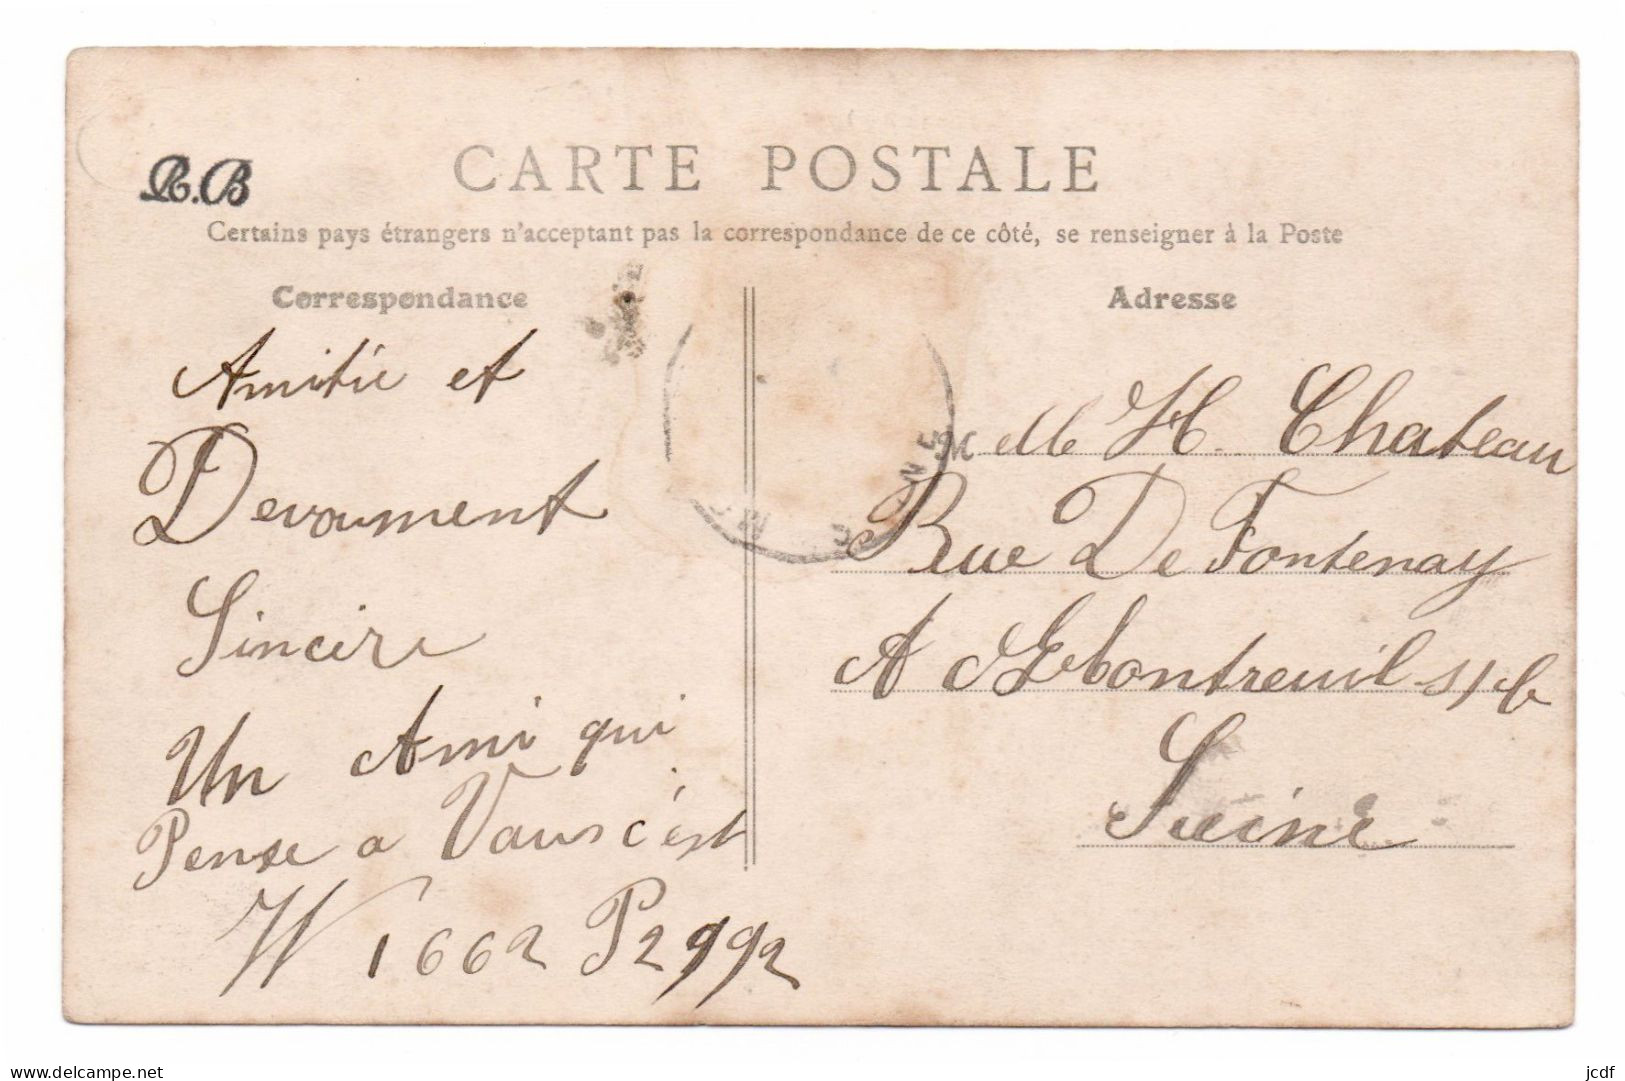 R.B
CARTE POSTALE
Certains pays étrangers n'acceptant pas la correspondance de ce côté, se renseigner à la Poste
Correspondance
Amitie et
Devoument
Sincire
Un Ami qui
Pense a Vous c'est
W 1662 P2992
Adresse
Melle H. Chateau
Rue De Fontenay
A Montreuil s/b
Seine
www.delcampe.net
jcdf